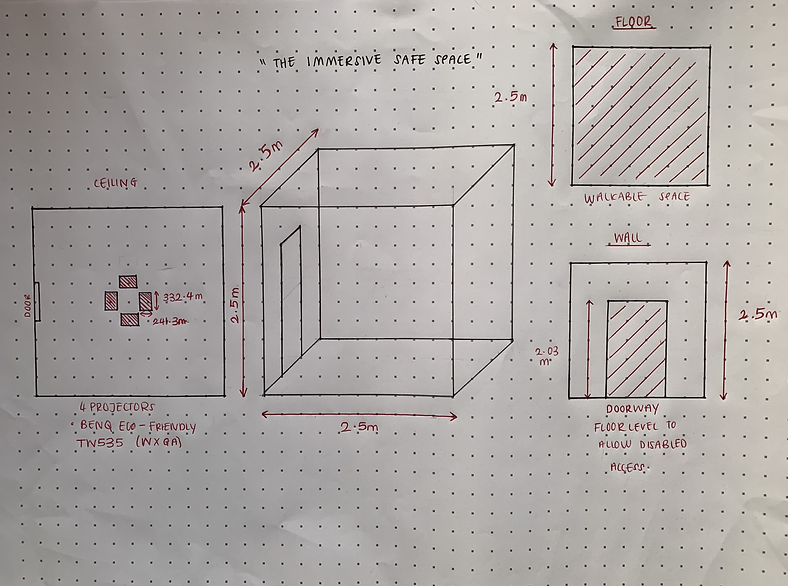 FLOOR
" THE IMMERSIVE SAFE SPACE "
2.5m
2.5m
CEILING
WALKABLE SPACE
WALL
DOOR
332.4m
241.3m
2.5m
2.5m
2.03
m
4 PROJECTORS
BENQ ECO-FRIENDLY
TW535 (WXGA)
2.5m
DOORWAY
FLOOR LEVEL TO
ALLOW DISABLED
ACCESS.